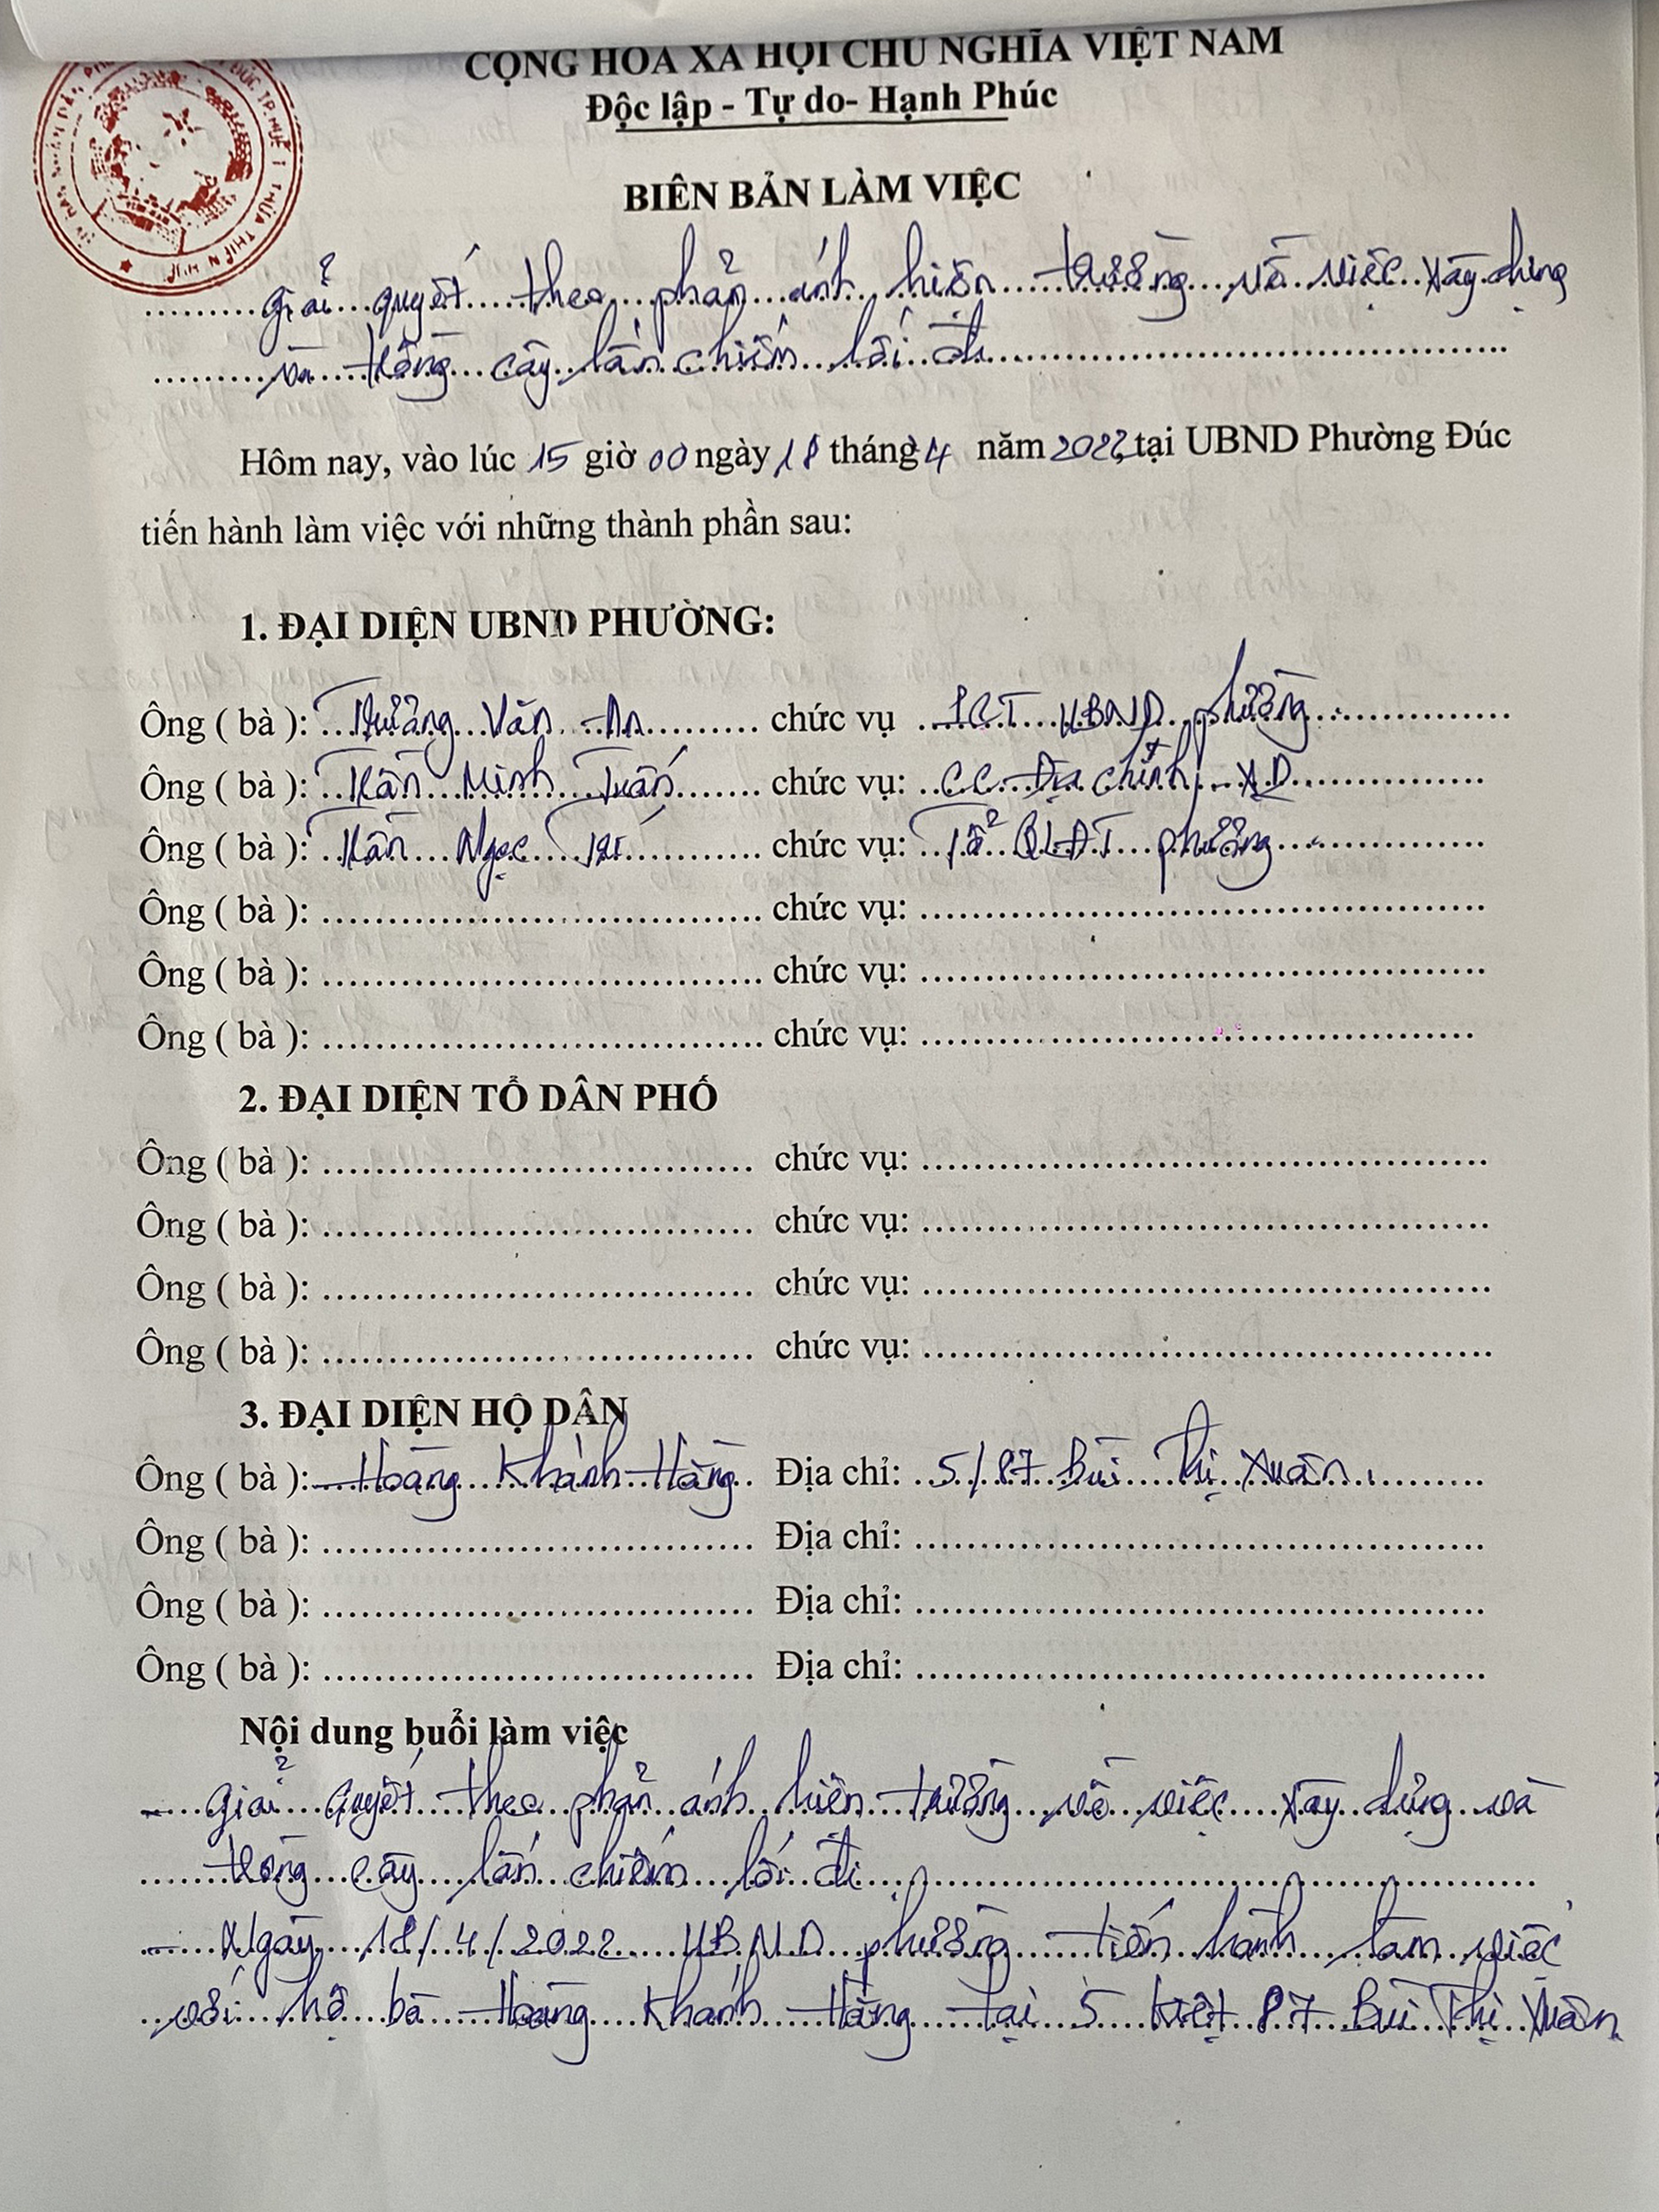 CỘNG HÒA XÃ HỘI CHỦ NGHĨA VIỆT NAM
Độc lập - Tự do- Hạnh Phúc
BIÊN BẢN LÀM VIỆC
Giải quyết theo phản ánh hiện trường về việc xây dựng
và trồng cây lấn chiếm lối đi
Hôm nay, vào lúc 15 giờ 00 ngày 18 tháng 4 năm 2022, tại UBND Phường Đúc
tiến hành làm việc với những thành phần sau:
1. ĐẠI DIỆN UBND PHƯỜNG:
Ông ( bà ): Trương Văn An chức vụ P.C.T UBND phường
Ông ( bà ): Trần Minh Tuấn chức vụ: CC Địa chính - XD
Ông ( bà ): Trần Ngọc Trí chức vụ: Tổ QLĐT phường
Ông ( bà ): chức vụ:
Ông ( bà ): chức vụ:
Ông ( bà ): chức vụ:
2. ĐẠI DIỆN TỔ DÂN PHỐ
Ông ( bà ): chức vụ:
Ông ( bà ): chức vụ:
Ông ( bà ): chức vụ:
Ông ( bà ): chức vụ:
3. ĐẠI DIỆN HỘ DÂN
Ông ( bà ): Hoàng Khánh Hằng Địa chỉ: 5/87 Bùi Thị Xuân
Ông ( bà ): Địa chỉ:
Ông ( bà ): Địa chỉ:
Ông ( bà ): Địa chỉ:
Nội dung buổi làm việc
- Giải quyết theo phản ánh hiện trường về việc xây dựng và
trồng cây lấn chiếm lối đi
- Ngày 18/4/2022 UBND phường tiến hành làm việc
với hộ bà Hoàng Khánh Hằng tại 5 kiệt 87 Bùi Thị Xuân